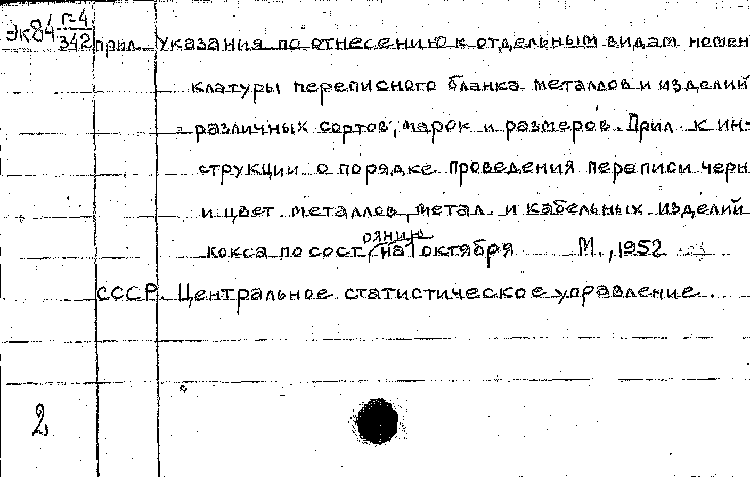 Эк84 г-4
342 прил. Указания по отнесению к отдельным видам номен
клатуры переписного бланка металлов и изделий
различных сортов, марок и размеров. Прил. к ин-
струкции о порядке проведения переписи черн
и цвет. металлов, метал. и кабельных изделий
оянию
кокса по сост. на 1 октября М., 1952
СССР. Центральное статистическое управление.
2